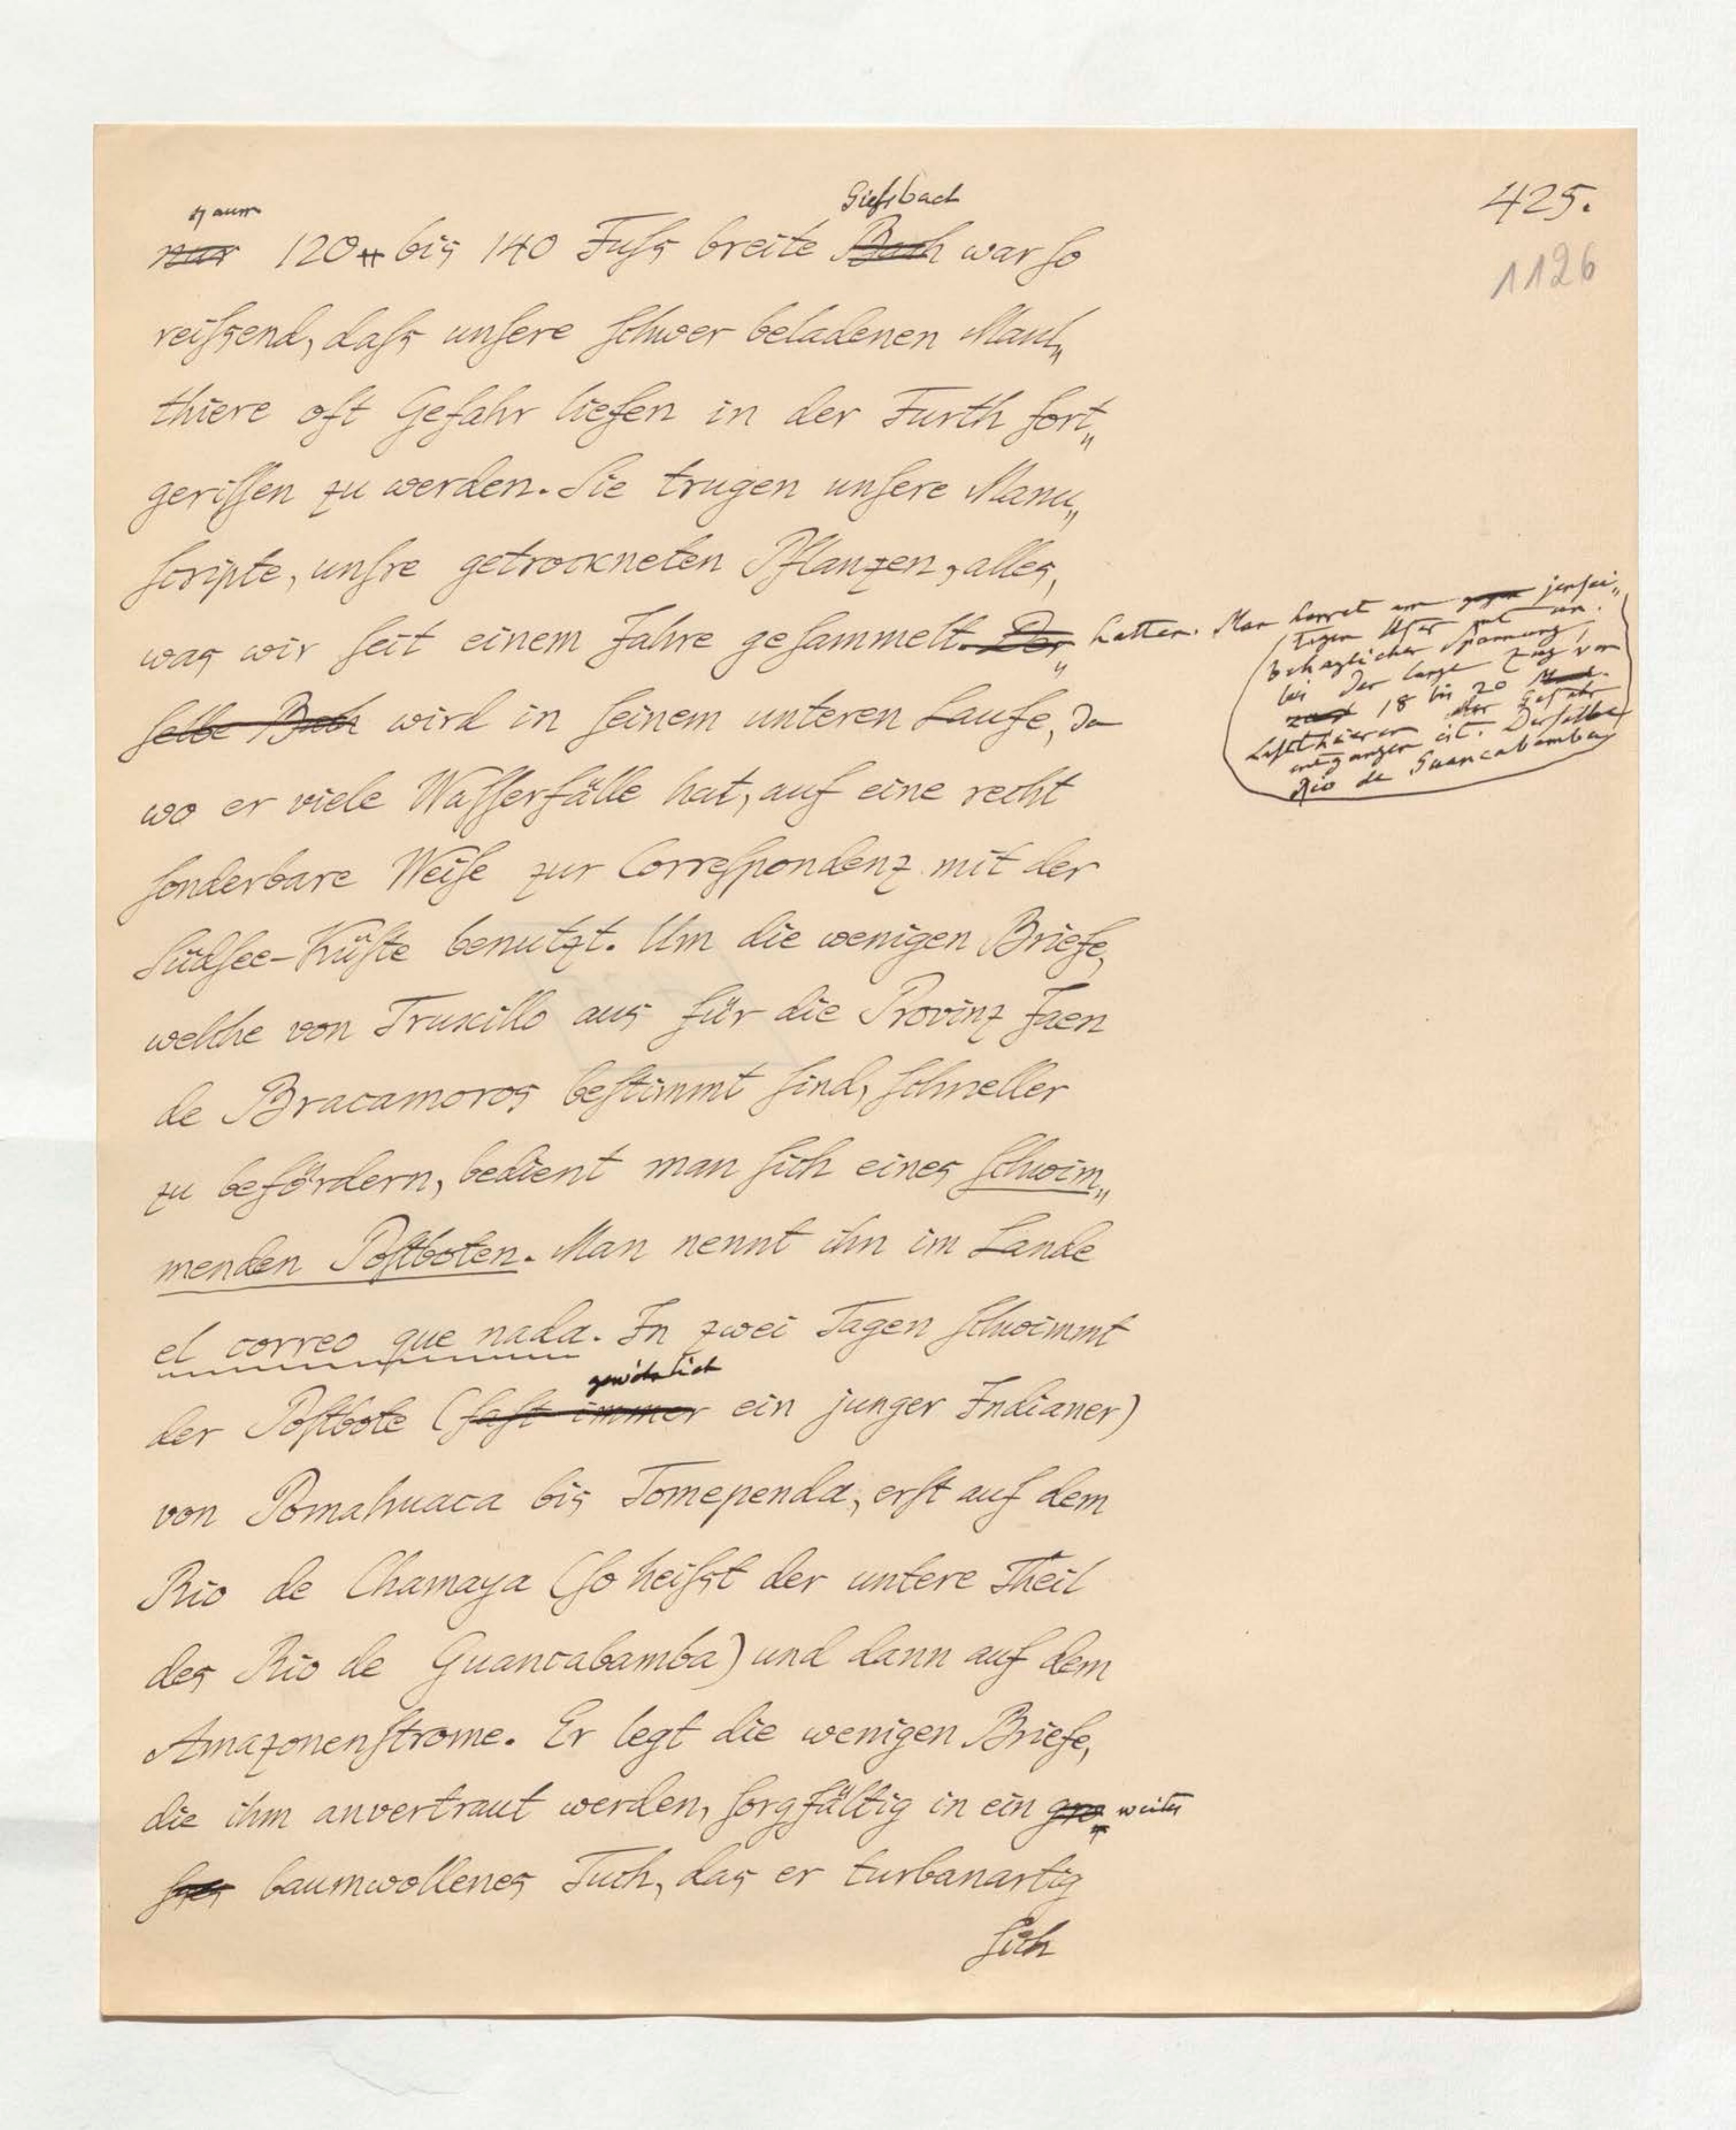 425.
1126
kaum
Giefsbach
nur 120 bis 140 Fuſs breite Bach war ſo
reiſsend, daſs unſere ſchwer beladenen Maul„
thiere oft Gefahr liefen in der Furth fort„
geriſſen zu werden. Sie trugen unſere Manu„
ſcripte, unſre getrockneten Pflanzen, alles,
was wir ſeit einem Jahre geſammelt. Der„ hatten. Man harret am jenſei„
tigen Ufer mit un„
behaglicher Spannung,
bei der lange Zug von
18 bis 20
Laſtthieren der Gefahr
entgangen iſt. Derſelbe
Rio de Guancabamba
ſelbe Bach wird in ſeinem unteren Laufe, da
wo er viele Waſſerfälle hat, auf eine recht
ſonderbare Weiſe zur Correſpondenz mit der
Südſee-Küſte benutzt. Um die wenigen Briefe,
welche von Truxillo aus für die Provinz Jaen
de Bracamoros beſtimmt ſind, ſchneller
zu befördern, bedient man ſich eines ſchwim„
menden Poſtboten. Man nennt ihn im Lande
el correo que nada. In zwei Tagen ſchwimmt
gewöhnlich
der Poſtbote (faſt immer ein junger Indianer)
von Pomahuaca bis Tomependa, erſt auf dem
Rio de Chamaya (ſo heiſst der untere Theil
des Rio de Guancabamba) und dann auf dem
Amazonenſtrome. Er legt die wenigen Briefe,
die ihm anvertraut werden, ſorgfältig in ein gro„ weites
ſses baumwollenes Tuch, das er turbanartig
ſich